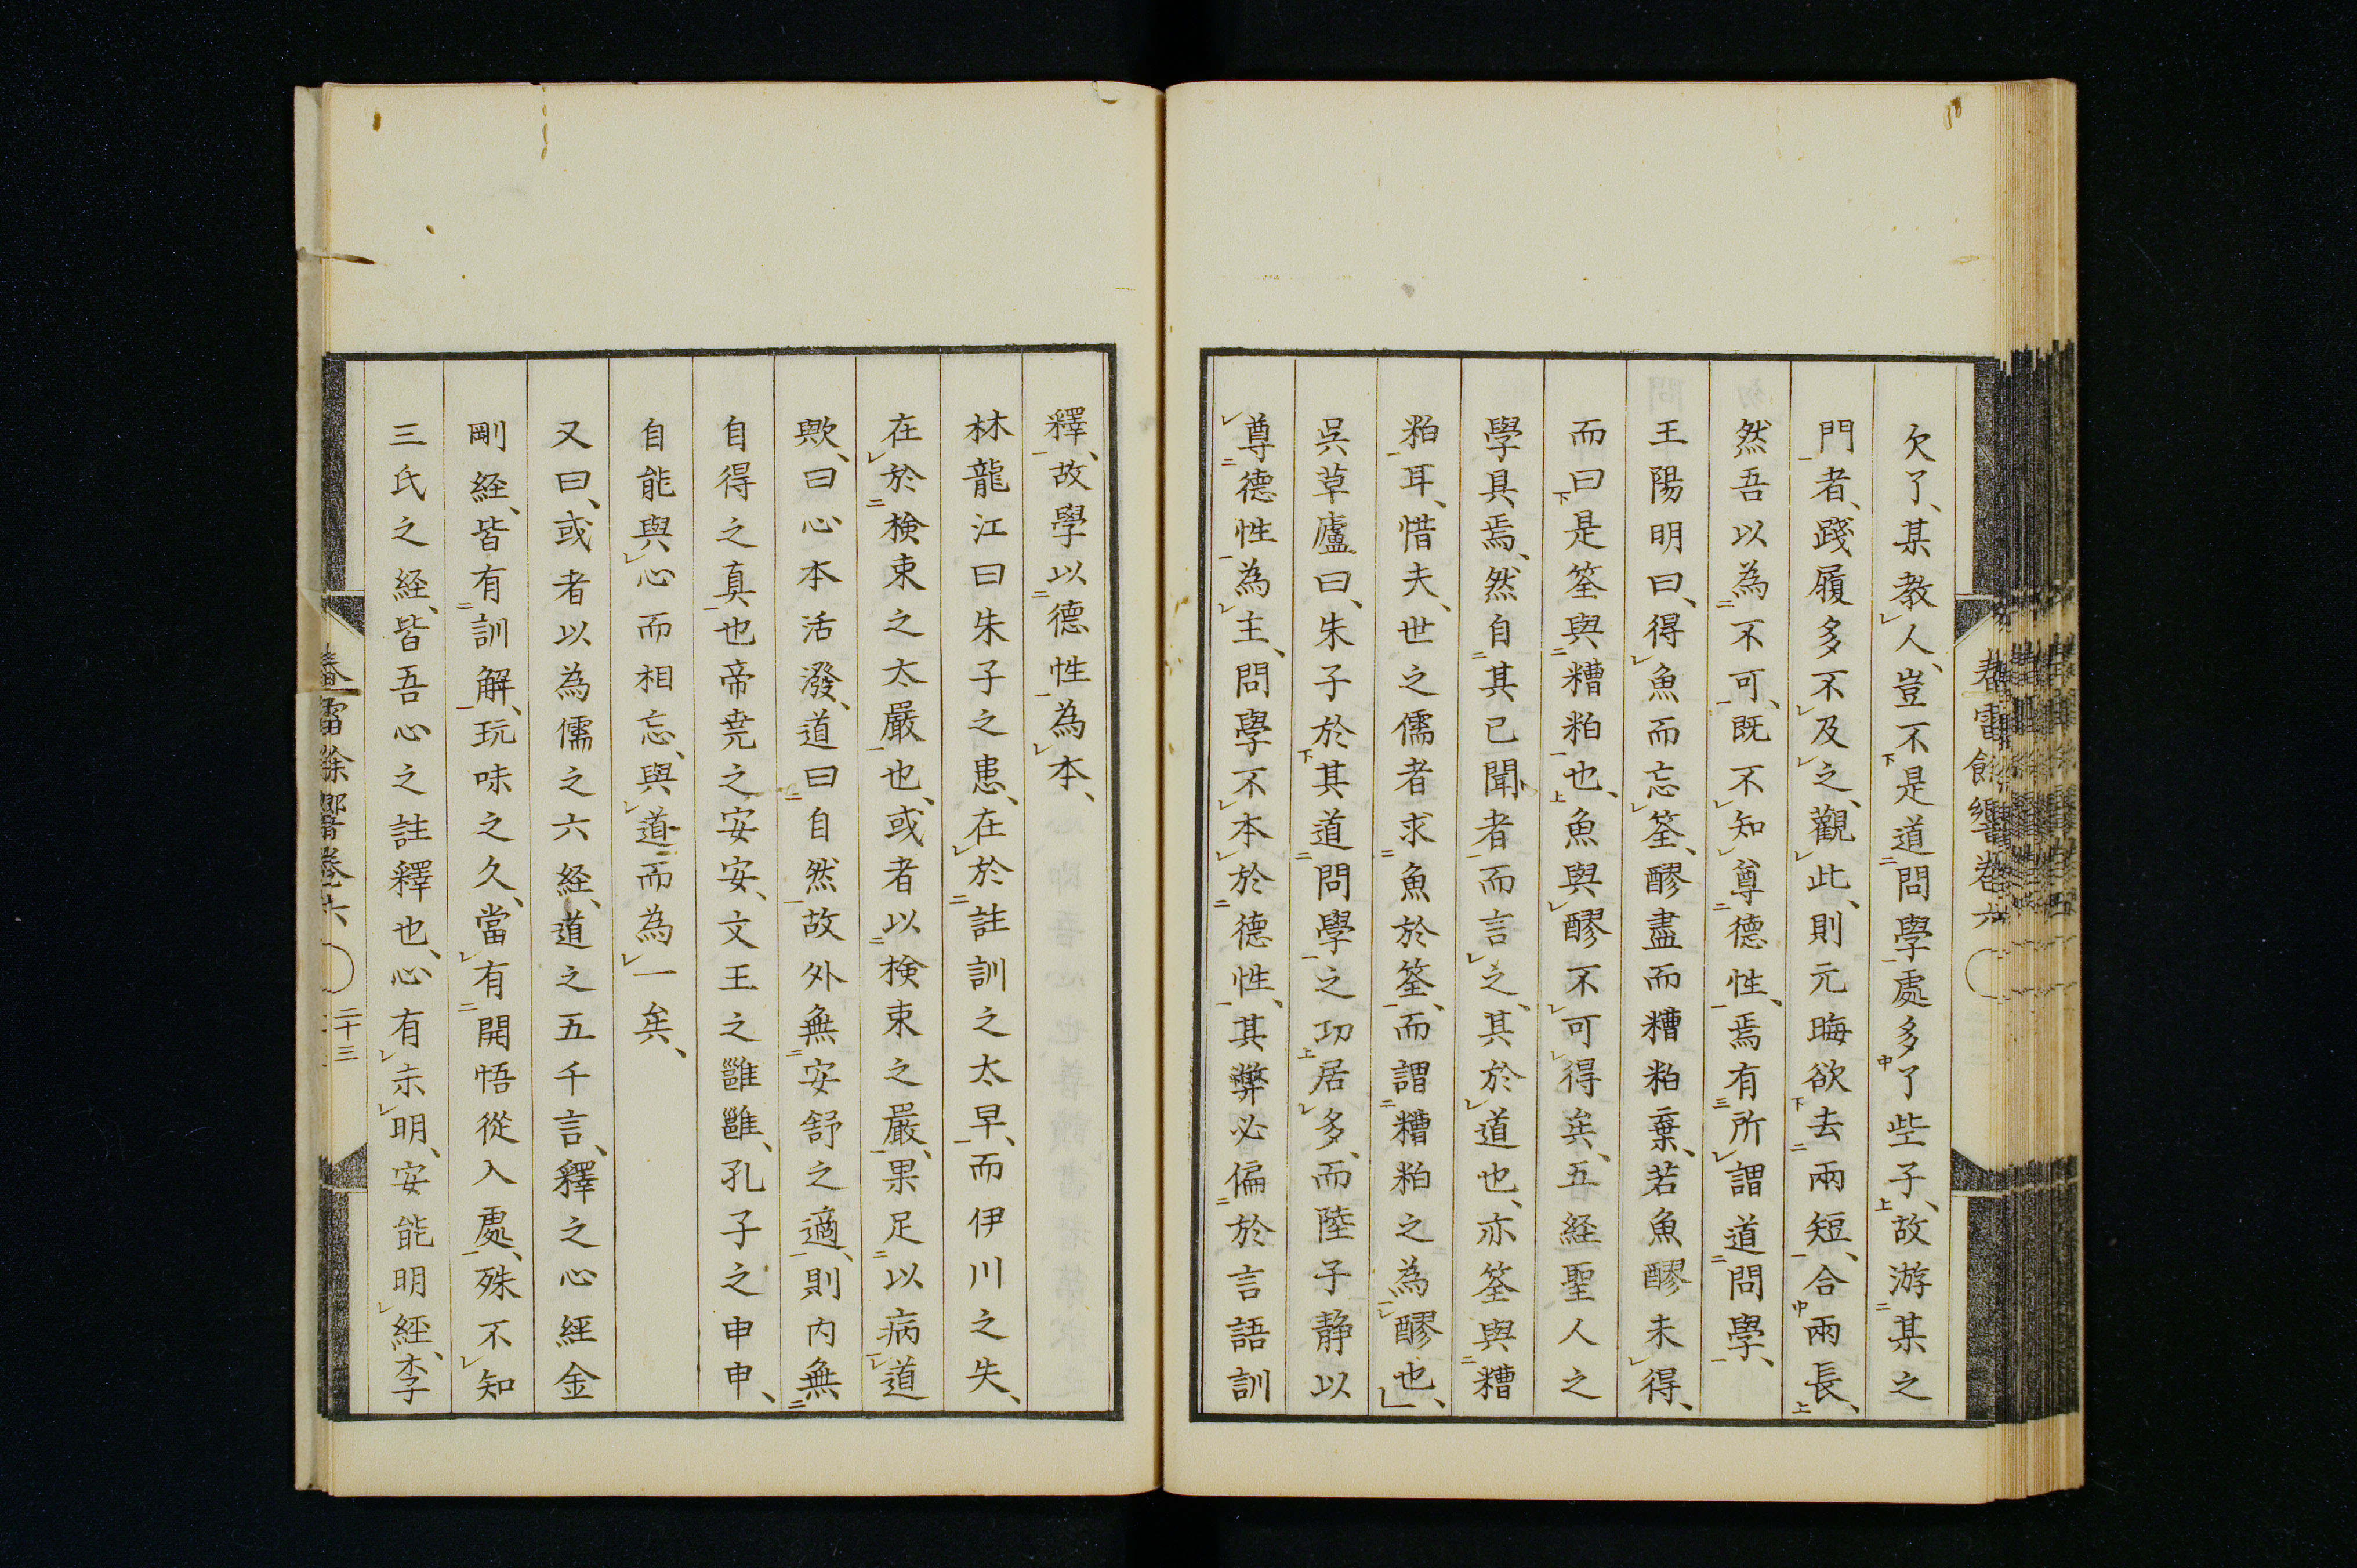 欠了、某教人、豈不是道問學處多了些子、故游某之
門者、踐履多不及之、觀此、則元晦欲去兩短、合兩長、
然吾以為不可、既不知尊德性、焉有所謂道問學、
王陽明曰、得魚而忘筌、醪盡而糟粕棄、若魚醪未得、
而曰是筌與糟粕也、魚與醪不可得矣、五経聖人之
學具焉、然自其已聞者而言之、其於道也、亦筌與糟
粕耳、惜夫、世之儒者求魚於筌、而謂糟粕之為醪也、
吳草廬曰、朱子於其道問學之功居多、而陸子静以
尊德性為主、問學不本於德性、其弊必偏於言語訓
釋、故學以德性為本、
林龍江曰朱子之患、在於註訓之太早、而伊川之失、
在於検束之太嚴也、或者以検束之嚴、果足以病道
歟、曰心本活潑、道曰自然故外無安舒之適、則内無
自得之真也帝尭之安安、文王之雝雝、孔子之申申、
自能與心而相忘、與道而為一矣、
又曰、或者以為儒之六経、道之五千言、釋之心經金
剛経、皆有訓解、玩味之久、當有開悟從入處、殊不知
三氏之経、皆吾心之註釋也、心有未明、安能明經、李
春雷餘響卷六
二十三